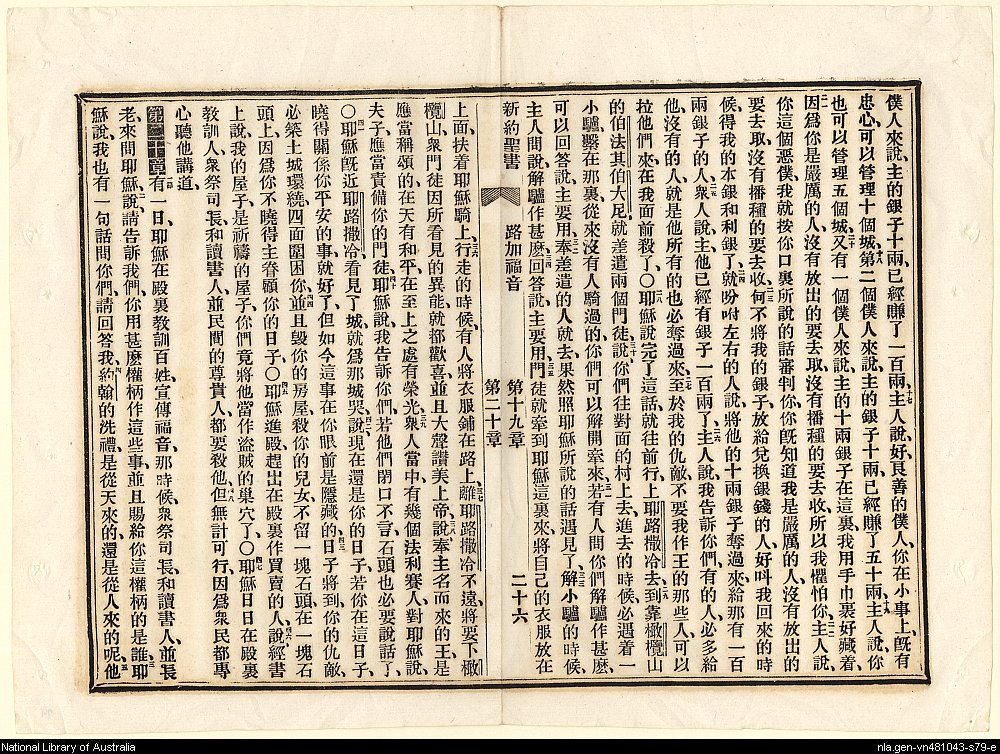 僕人來說、主的銀子十兩、已經賺了一百兩、主人說、好、良善的僕人、你在小事上、旣有
忠心、可以管理十個城、第二個僕人來說、主的銀子十兩、已經賺了五十兩、主人說、你
也可以管理五個城、又有一個僕人來說、主的十兩銀子在這裏、我用手巾裹好藏着、
因爲你是嚴厲的人、沒有放出的要去取、沒有播種的要去收、所以我懼怕你、主人說、
你這個惡僕、我就按你口裏所說的話審判你、你旣知道我是嚴厲的人、沒有放出的
要去取、沒有播種的要去收、何不將我的銀子放給兌換銀錢的人、好呌我回來的時
候、得我的本銀和利銀了、就吩咐左右的人說、將他的十兩銀子奪過來、給那有一百
兩銀子的人、衆人說、主、他已經有銀子一百兩了、主人說、我告訴你們、有的人、必多給
他、沒有的人、就是他所有的也必奪過來、至於我的仇敵、不要我作王的那些人、可以
拉他們來、在我面前殺了、〇耶穌說完了這話、就往前行、上耶路撒冷去、到靠橄欖山
的伯法其、伯大尼、就差遣兩個門徒、說、你們往對面的村上去、進去的時候、必遇着一
小驢繫在那裏、從來沒有人騎過的、你們可以解開牽來、若有人問你們解驢作甚麽、
可以回答說、主要用、奉差遣的人就去、果然照耶穌所說的話遇見了、解小驢的時候、
主人問說、解驢作甚麽、回答說、主要用、門徒就牽到耶穌這裏來、將自己的衣服放在
新約聖書 路加福音 第十九章 第二十章 二十六
上面、扶着耶穌騎上、行走的時候、有人將衣服鋪在路上、離耶路撒冷不遠、將要下橄
欖山、衆門徒因所看見的異能、就都歡喜、並且大聲讃美上帝、說、奉主名而來的王、是
應當稱頌的、在天有和平、在至上之處有榮光、衆人當中有幾個法利賽人、對耶穌說、
夫子、應當責備你的門徒、耶穌說、我告訴你們、若他們閉口不言、石頭也必要說話了、
〇耶穌旣近耶路撒冷、看見了城、就爲那城哭、說、現在還是你的日子、若你在這日子、
曉得關係你平安的事、就好了、但如今這事在你眼前是隱藏的、日子將到、你的仇敵、
必築土城、環繞四面圍困你、並且毀你的房屋、殺你的兒女、不留一塊石頭在一塊石
頭上、因爲你不曉得主眷顧你的日子、〇耶穌進殿、趕出在殿裏作買賣的人、說、經書
上說、我的屋子是祈禱的屋子、你們竟將他當作盜賊的巢穴了、〇耶穌日日在殿裏
教訓人、衆祭司長、和讀書人、並民間的尊貴人、都要殺他、但無計可行、因爲衆民都專
心聽他講道、
第二十章有一日、耶穌在殿裏教訓百姓、宣傳福音、那時候、衆祭司長、和讀書人、並長
老、來問耶穌、說、請告訴我們、你用甚麽權柄作這些事、並且賜給你這權柄的是誰、耶
穌說、我也有一句話問你們、請回答我、約翰的洗禮、是從天來的、還是從人來的呢、他
National Library of Australia
nla.gen-vn481043-s79-e